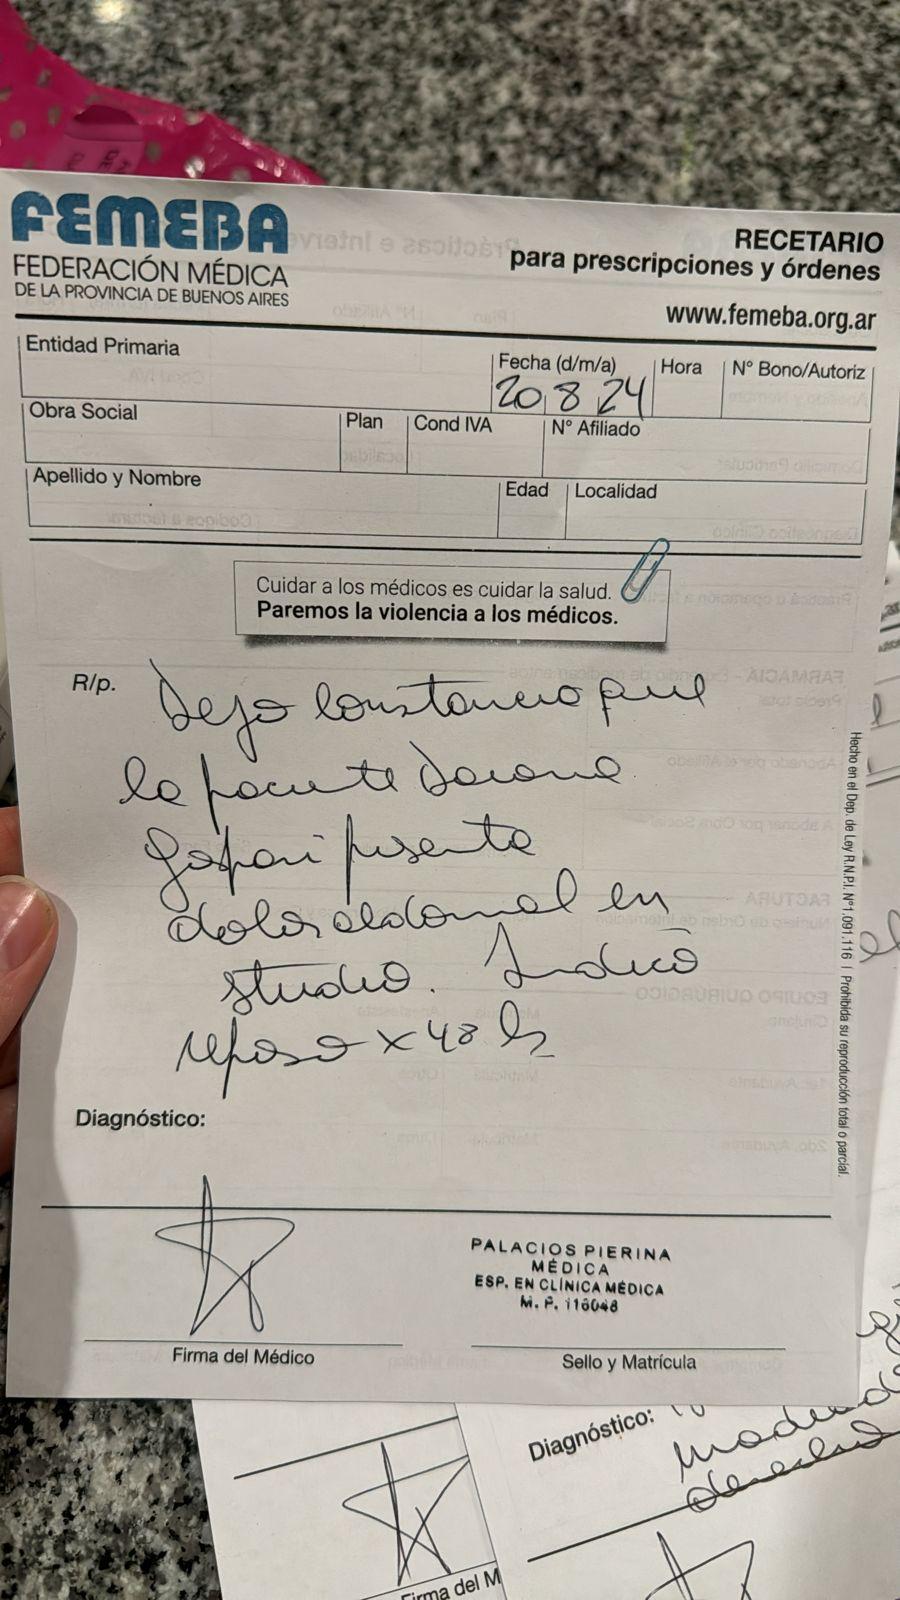 FEMEBA
FEDERACIÓN MÉDICA
DE LA PROVINCIA DE BUENOS AIRES
RECETARIO
para prescripciones y órdenes
www.femeba.org.ar
Entidad Primaria
Fecha (d/m/a)
20 8 24
Hora
N° Bono/Autoriz
Obra Social
Plan
Cond IVA
N° Afiliado
Apellido y Nombre
Edad
Localidad
Cuidar a los médicos es cuidar la salud.
Paremos la violencia a los médicos.
R/p.
Dejo constancia que
la paciente
presenta
dolor abdominal en
studio. Indico
reposo x 48 hs
Diagnóstico:
Firma del Médico
PALACIOS PIERINA
MÉDICA
ESP. EN CLÍNICA MÉDICA
M. P. 116048
Sello y Matrícula
Hecho en el Dep. de Ley R.N.P.I. Nº1.091.116 | Prohibida su reproducción total o parcial.
Diagnóstico:
Firma del M